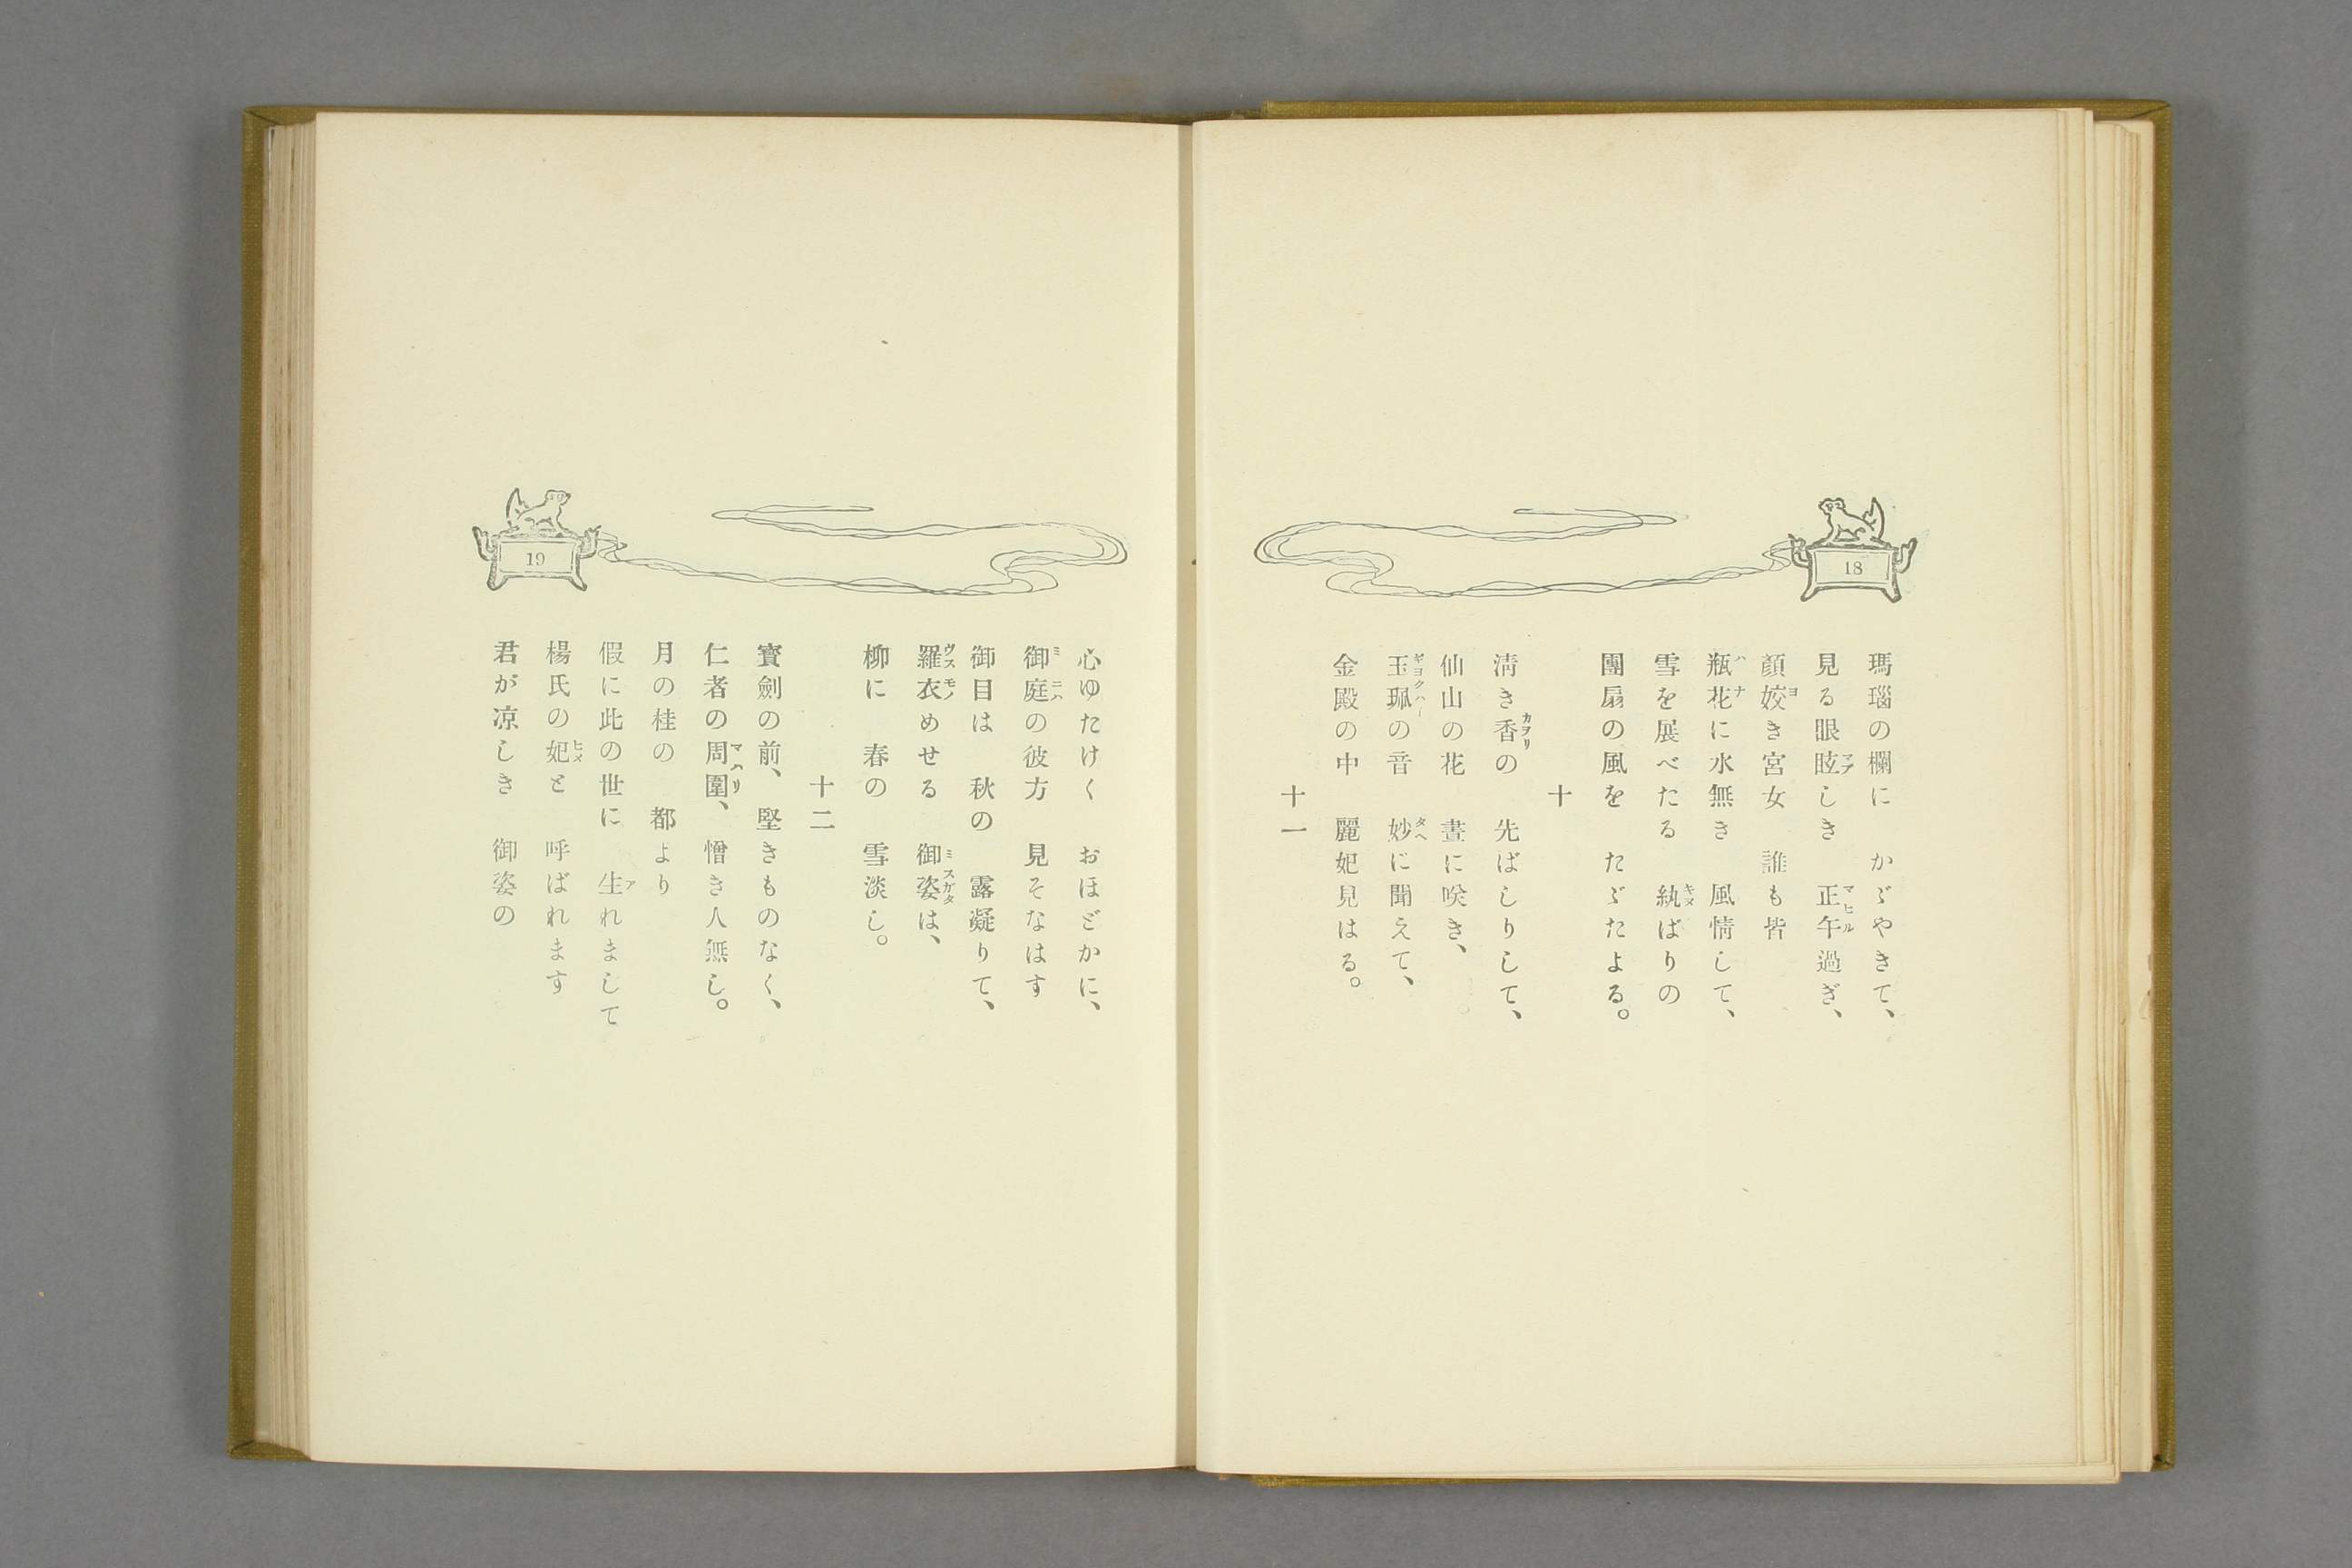 18
瑪瑙の欄に　かゞやきて、
見る眼眩しき　正午過ぎ、
顏姣き宮女　誰も皆
瓶花に水無き　風情して、
雪を展べたる　紈ばりの
團扇の風を　たゞたよる。
十
淸き香の　先ばしりして、
仙山の花　晝に咲き、
玉珮の音　妙に聞えて、
金殿の中　麗妃見はる。
十一
19
心ゆたけく　おほどかに、
御庭の彼方　見そなはす
御目は　秋の　露凝りて、
羅衣めせる　御姿は、
柳に　春の　雪淡し。
十二
寳劍の前、　堅きものなく、
仁者の周圍、　憎き人無し。
月の桂の　都より
假に此の世に　生れまして
楊氏の妃と　呼ばれます
君が凉しき　御姿の